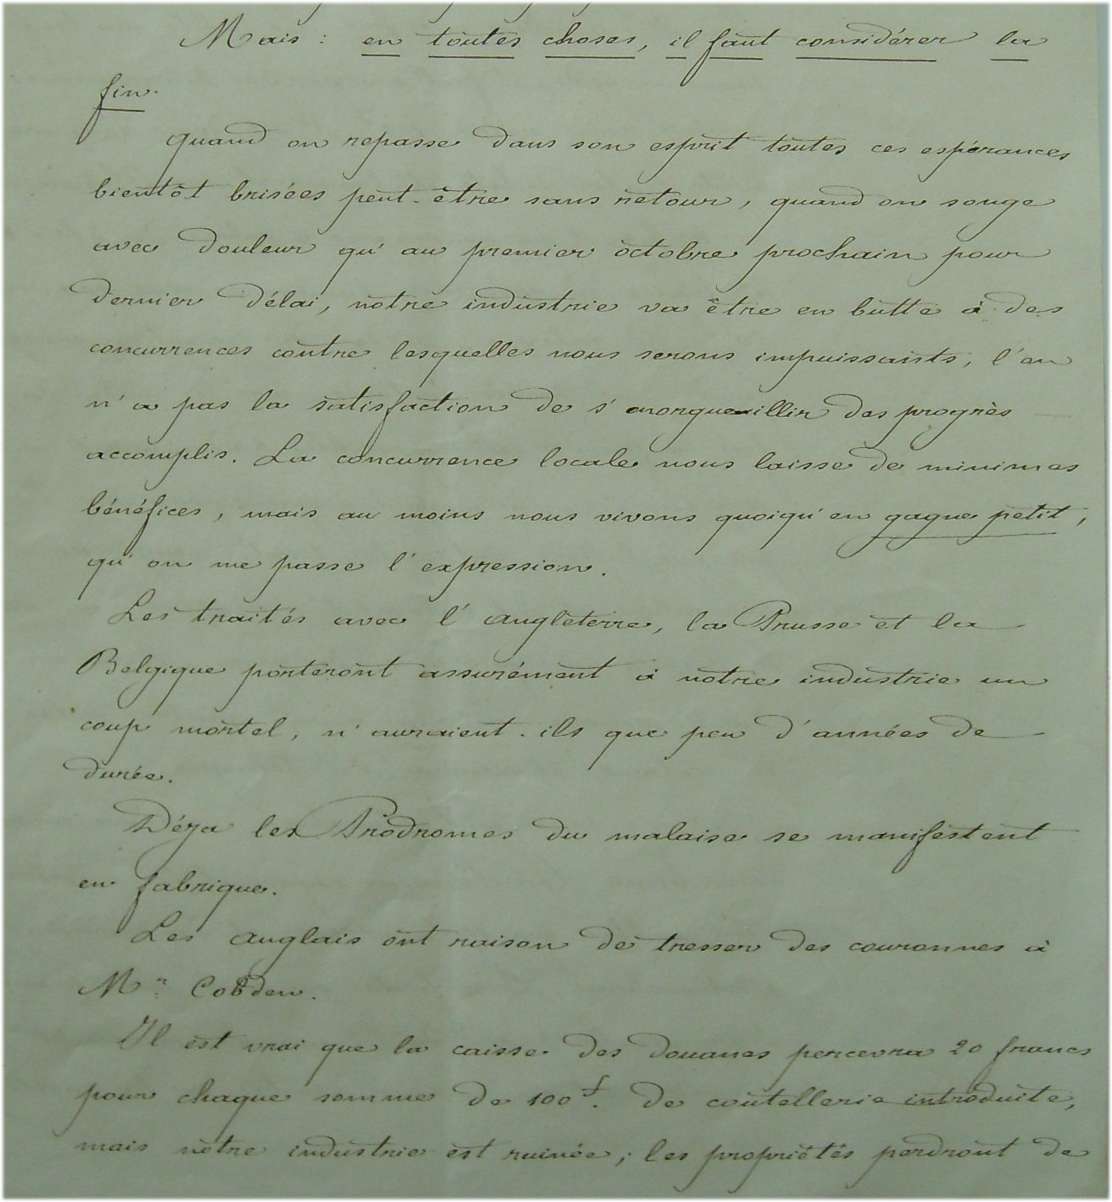 Mais : en toutes choses, il faut considérer la
fin.
Quand on repasse dans son esprit toutes ces espérances
bientôt brisées peut-être sans retour, quand on songe
avec douleur qu'au premier octobre prochain pour
dernier délai, notre industrie va être en butte à des
concurrences contre lesquelles nous serons impuissants, l'on
n'a pas la satisfaction de s'enorgueillir des progrès
accomplis. La concurrence locale nous laisse de minimes
bénéfices, mais au moins nous vivons quoiqu'en gagne petit,
qu'on me passe l'expression.
Les traités avec l'Angleterre, la Prusse et la
Belgique porteront assurément à notre industrie un
coup mortel, n'auraient-ils que peu d'années de
durée.
Déja les Prodromes du malaise se manifestent
en fabrique.
Les anglais ont raison de tresser des couronnes à
Mr Cobden.
Il est vrai que la caisse des douanes percevra 20 francs
pour chaque somme de 100 f. de coutellerie introduite,
mais notre industrie est ruinée ; les propriétés perdront de